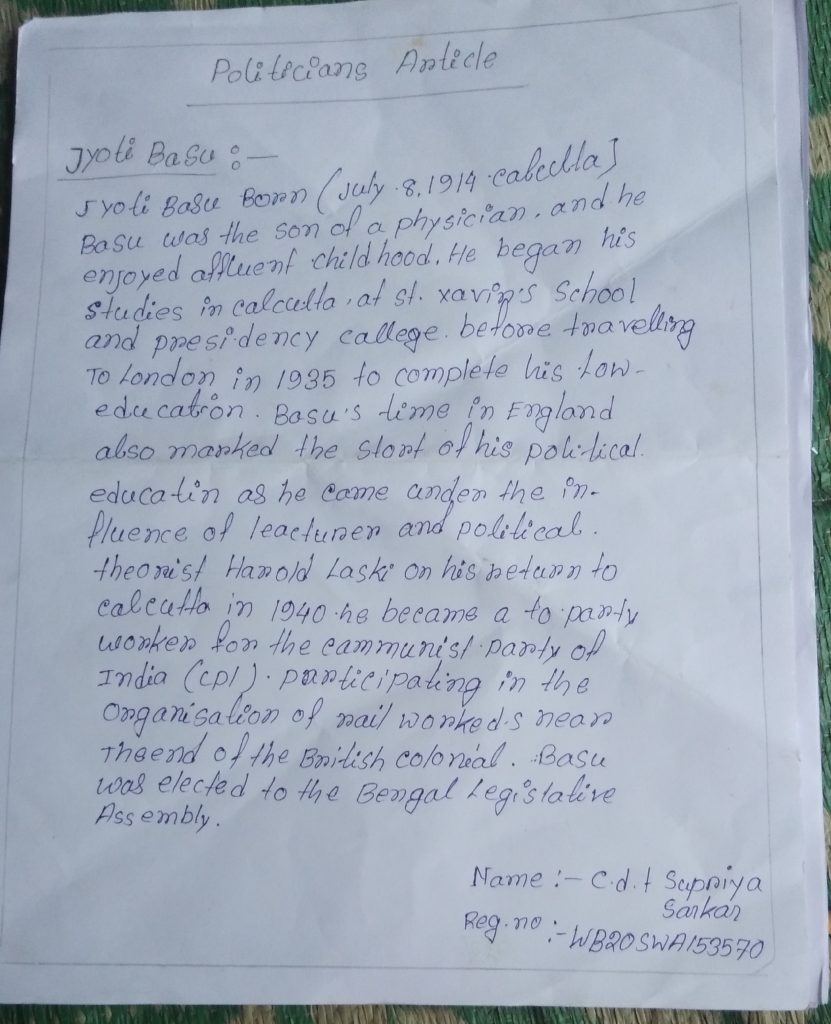 Politicians Article
Jyoti Basu :-
Jyoti Basu Born (July 8, 1914 calcutta)
Basu was the son of a physician. and he
enjoyed affluent child hood. He began his
studies in calcutta, at st. xavir's School
and presidency callege. before travelling
To London in 1935 to complete his Low-
education. Basu's time in England
also marked the start of his political.
educatin as he came under the in-
fluence of leacturer and political.
theorist Harold Laski on his return to
calcutta in 1940 he became a to party
worker for the cammunist party of
India (CPI). participating in the
Organisation of rail workeds near
Theend of the British colonial. Basu
was elected to the Bengal Legislative
Assembly.
Name :- C.d.t Supriya
Sarkar
Reg. no :- WB20SWA153570